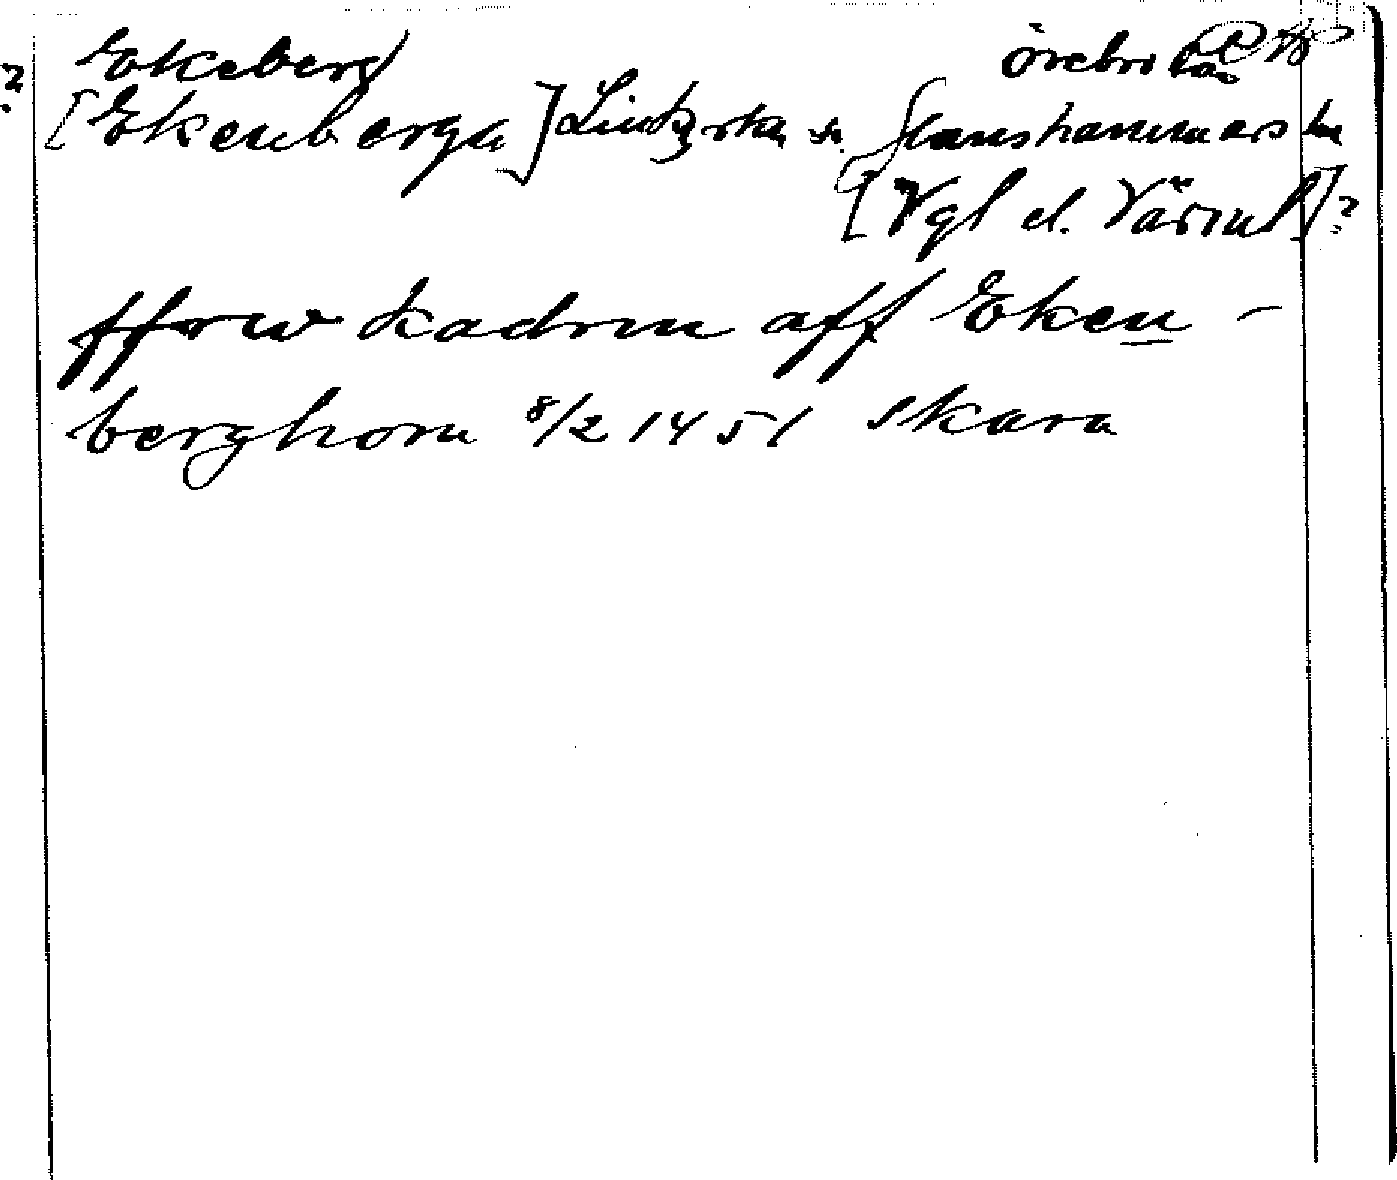 ? Ekeberg Örebro län
[Ekenberga] Lillkyrka sn. Glanshammars hd
[Vgl el. Värml]?
ffrw kadrin aff Eken-
berghom 8/2 1451 Skara